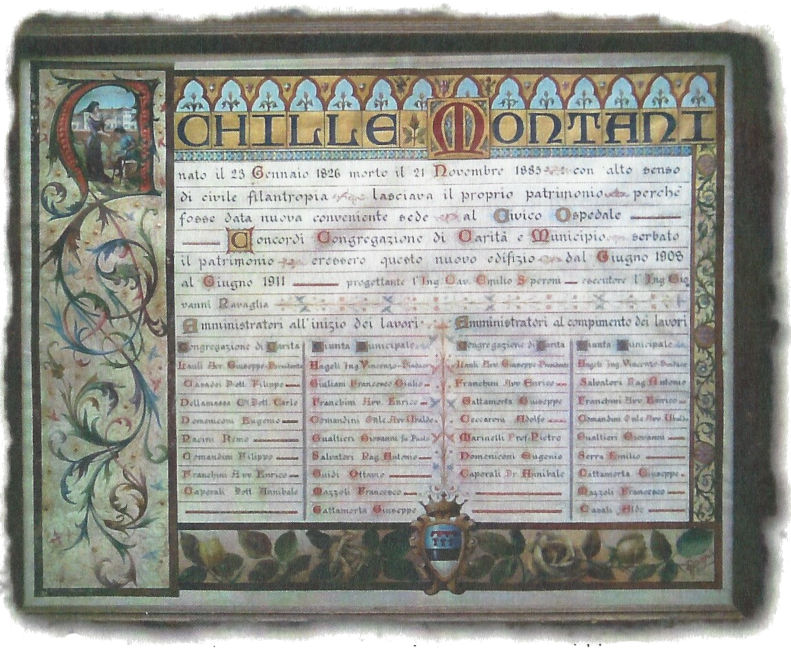 ACHILLE MONTANI
nato il 23 Gennaio 1826 morto il 21 Novembre 1885 con alto senso
di civile filantropia lasciava il proprio patrimonio perchè
fosse data nuova conveniente sede al Civico Ospedale
Concordi Congregazione di Carità e Municipio serbato
il patrimonio eressero questo nuovo edifizio dal Giugno 1908
al Giugno 1911 progettante l'Ing Cav. Emilio Speroni esecutore l'Ing Gio
vanni Ravaglia
Amministratori all'inizio dei lavori
Congregazione di Carita
Giunta Municipale
Avv Giuseppe Presidente
Angeli Ing Vincenzo Sindaco
Casadei Dott Filippo
Giuliani Francesco Giulio
Dellamassa Dott Carlo
Franchini Avv Enrico
Domeniconi Eugenio
Comandini Onle Avv Ubaldo
Pacini Remo
Gualtieri Giovanni fu Paolo
Comandini Filippo
Salvatori Rag Antonio
Franchini Avv Enrico
Guidi Ottavio
Caporali Dott Annibale
Mazzoli Francesco
Gattamorta Giuseppe
Amministratori al compimento dei lavori
Congregazione di Carita
Giunta Municipale
Avv Giuseppe Presidente
Angeli Ing Vincenzo Sindaco
Franchini Avv Enrico
Salvatori Rag Antonio
Gattamorta Giuseppe
Franchini Avv Enrico
Ceccaroni Adolfo
Comandini Onle Avv Ubaldo
Marinelli Prof Pietro
Gualtieri Giovanni
Domeniconi Eugenio
Serra Emilio
Caporali Dr Annibale
Gattamorta Giuseppe
Mazzoli Francesco
Casali Aldo